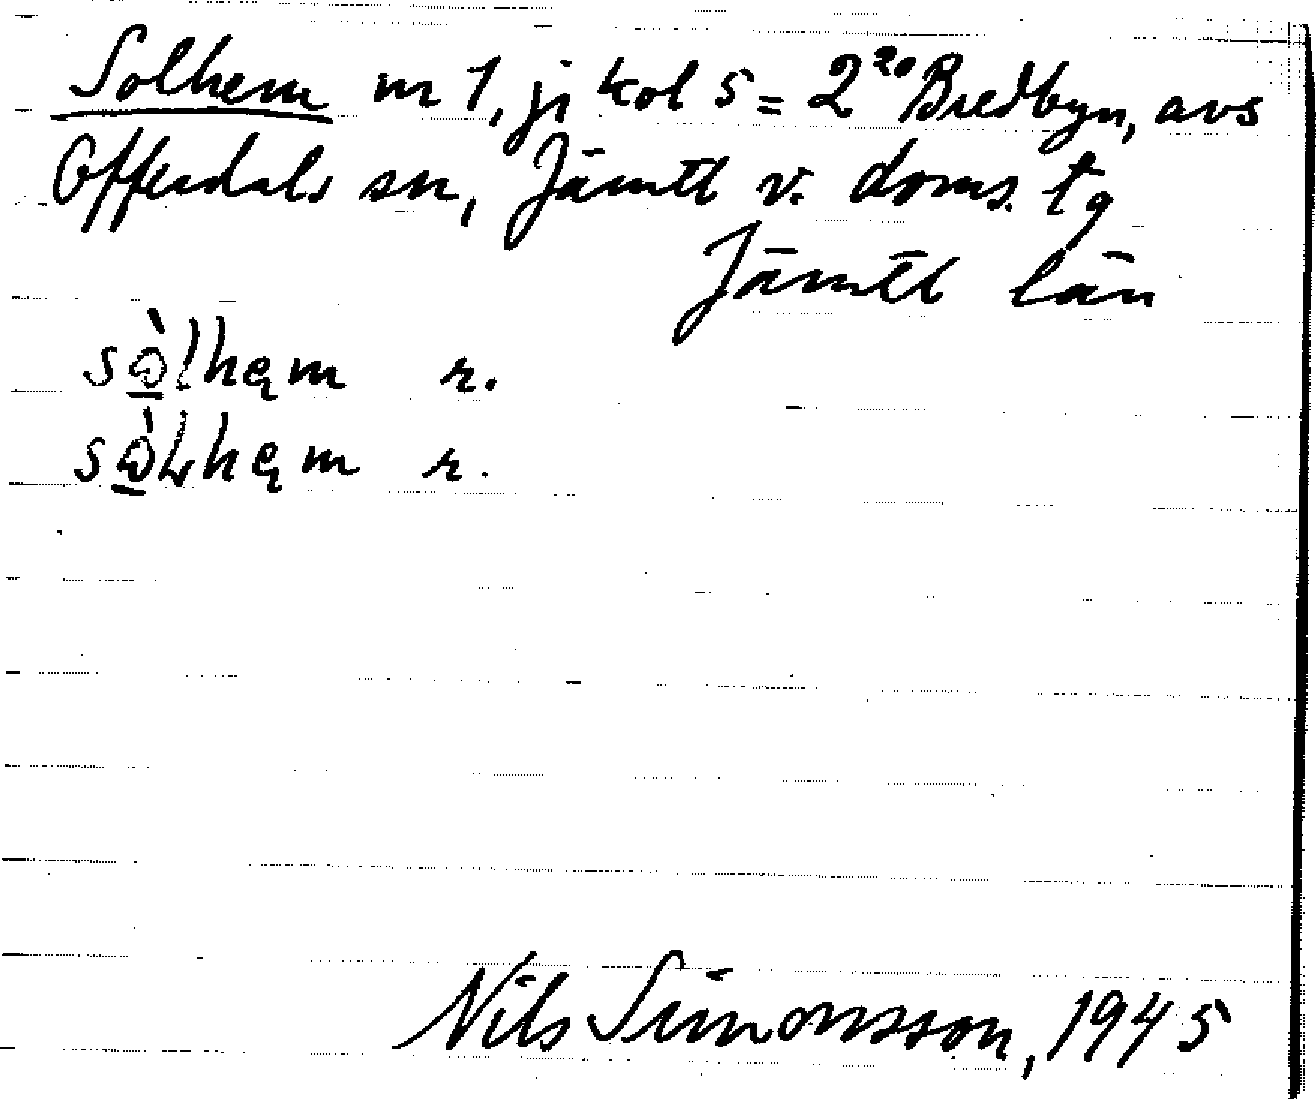 Solhem nr 1, jr kol 5 = 2²⁰ Bredbyn, avs
Offerdals sn, Jämtl v. doms. tg
Jämtl län
r.
r.
Nils Simonsson, 1945